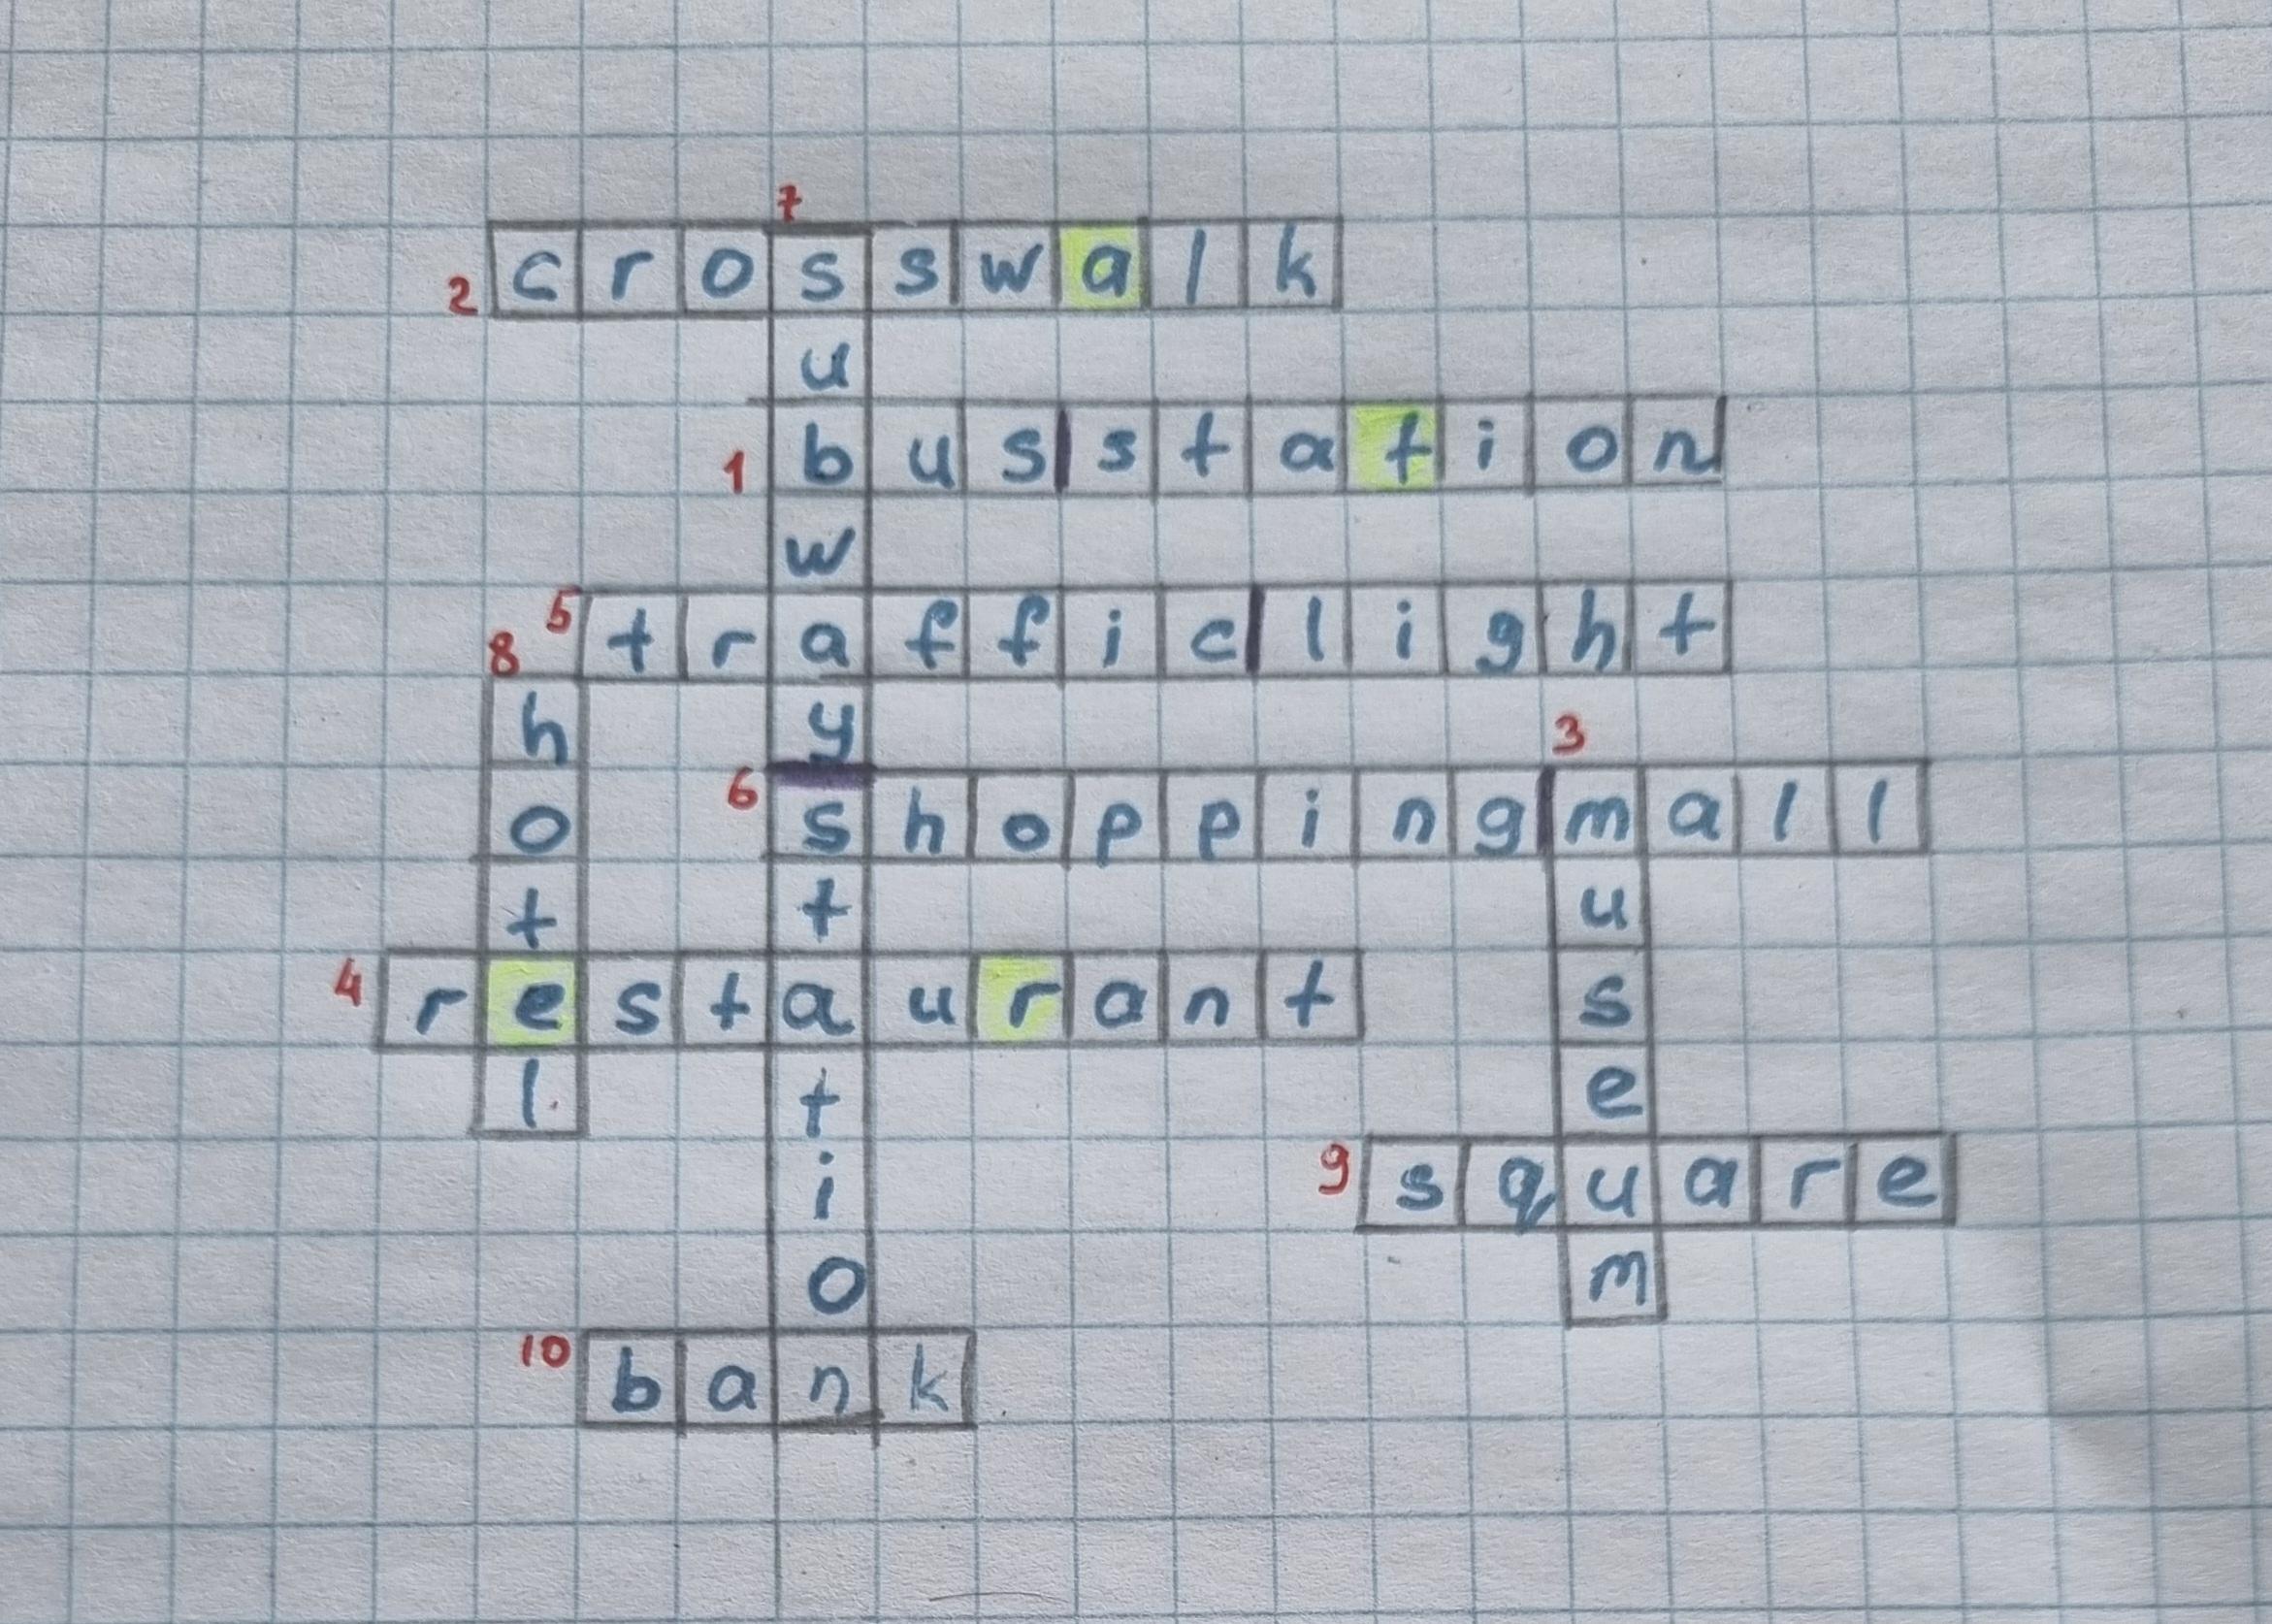 7
2 crosswalk
u
1 bus station
w
5 traffic light
8
h y 3
6 o shopping mall
t t u
4 restaurant s
l t e
i 9 square
o m
10 bank